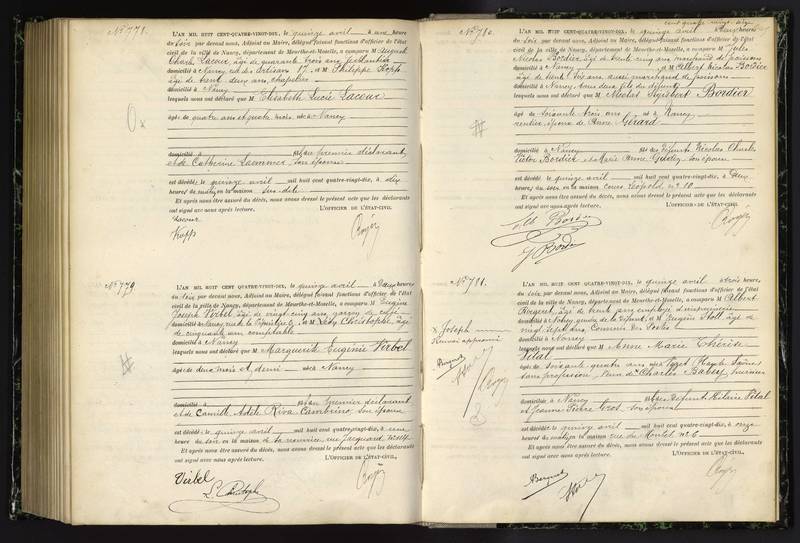 N° 778.
L'AN MIL HUIT CENT QUATRE-VINGT-DIX, le quinze avril à une heure
du soir par devant nous, Adjoint au Maire, délégué faisant fonctions d'officier de l'état
civil de la ville de Nancy, département de Meurthe-et-Moselle, a comparu M August
Charles Lacour, âgé de quarante trois ans,
domicilié à Nancy, rue des Artisans 17, & M Philippe Kopp
âgé de trente deux ans, chapelier
domicilié à Nancy
lesquels nous ont déclaré que M Elisabeth Lucie Lacour
âgée de quatre ans et quatre mois née à Nancy
domicilié à fille au premier déclarant
et de Catherine Laemmer, son épouse
est décédée le quinze avril mil huit cent quatre-vingt-dix, à dix
heures du matin en la maison sus-dite
Et après nous être assuré du décès, nous avons dressé le présent acte que les déclarants
ont signé avec nous après lecture. L'OFFICIER DE L'ÉTAT-CIVIL
Lacour
Kopp
N° 779.
L'AN MIL HUIT CENT QUATRE-VINGT-DIX, le quinze avril à deux heures
du soir, par devant nous, Adjoint au Maire, délégué faisant fonctions d'officier de l'état
civil de la ville de Nancy, département de Meurthe-et-Moselle, a comparu M Eugène
Joseph Virbel, âgé de vingt-cinq ans, garçon de café
domicilié à Nancy, & M Christophe, âgé
de cinquante ans comptable
domicilié à Nancy
lesquels nous ont déclaré que M Marguerite Eugénie Virbel
âgée de deux mois et demi née à Nancy
domicilié à fille au premier déclarant
et de Camille Adèle Riva Cambrino, son épouse
est décédée le quinze avril mil huit cent quatre-vingt-dix, à une
heure du soir en la maison de la nourrice, rue Jacquard
Et après nous être assuré du décès, nous avons dressé le présent acte que les déclarants
ont signé avec nous après lecture. L'OFFICIER DE L'ÉTAT-CIVIL,
Virbel
L. Christophe
N° 780.
L'AN MIL HUIT CENT QUATRE-VINGT-DIX, le quinze avril à deux heures
du soir par devant nous, Adjoint au Maire, délégué faisant fonctions d'officier de l'état
civil de la ville de Nancy, département de Meurthe-et-Moselle, a comparu M Jules
Nicolas Bordier, âgé de trente cinq ans, marchand de poissons
domicilié à Nancy & M Albert Nicolas Bordier
âgé de trente six ans, aussi marchand de poissons
domicilié à Nancy, tous deux fils du défunt
lesquels nous ont déclaré que M Nicolas Sigisbert Bordier
âgé de soixante trois ans né à Nancy
rentier, époux de Anne Gérard
domicilié à Nancy fils des défunts Nicolas Charles
Victor Bordier et Marie Anne son épouse
est décédé le quinze avril mil huit cent quatre-vingt-dix, à deux
heures du soir en la maison cours Léopold n° 10
Et après nous être assuré du décès, nous avons dressé le présent acte que les déclarants
ont signé avec nous après lecture. L'OFFICIER DE L'ÉTAT-CIVIL
Bordier
J Bordier
N° 781.
L'AN MIL HUIT CENT QUATRE-VINGT-DIX, le quinze avril à trois heures
du soir, par devant nous, Adjoint au Maire, délégué faisant fonctions d'officier de l'état
civil de la ville de Nancy, département de Meurthe-et-Moselle, a comparu M Albert
âgé de trente ans, employé d'imprimerie
domicilié à Nancy, gendre de la défunte, & M Eugène âgé de
vingt sept ans, Commis des Postes
domicilié à Nancy
lesquels nous ont déclaré que M Anne Marie Thérèse
Vital
âgée de soixante quatre ans née à Haute Saône
sans profession, veuve de Charles
domicilié à Nancy fille des défunts Hilaire Vital
et Jeanne Pierre son épouse
est décédée le quinze avril mil huit cent quatre-vingt-dix, à onze
heures du matin en la maison rue du Montet n° 6
Et après nous être assuré du décès, nous avons dressé le présent acte que les déclarants
ont signé avec nous après lecture. L'OFFICIER DE L'ÉTAT-CIVIL
x Joseph
Renvoi approuvé